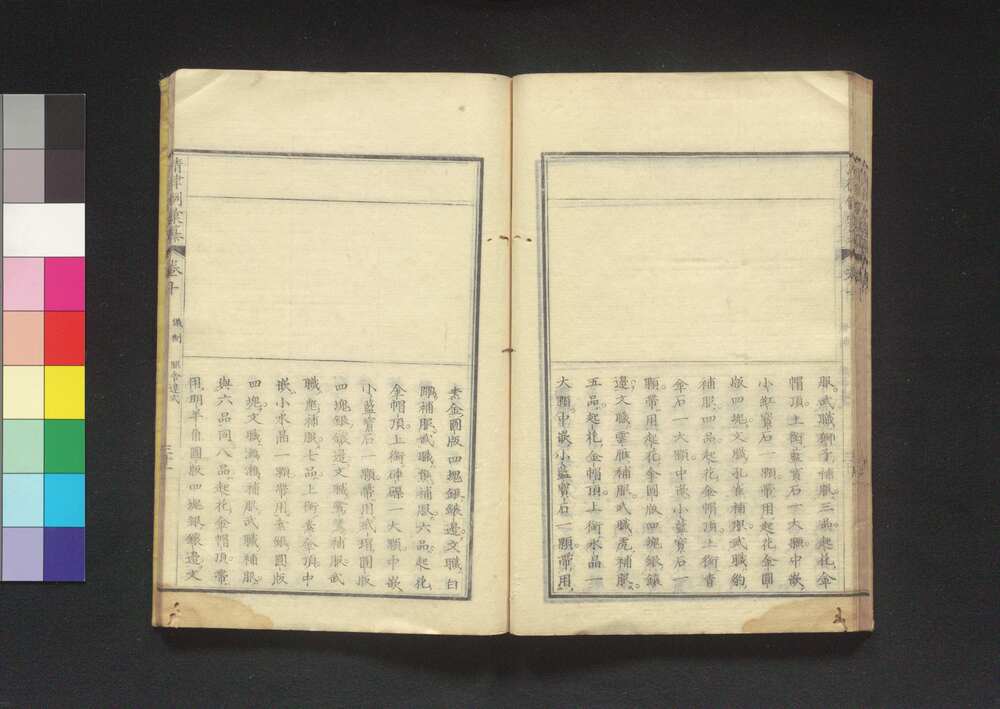 服。武職獅子補服。三品。起花金
帽頂。上銜藍寶石一大顆。中嵌
小紅寶石一顆。帶用起花金圓
版四塊。文職孔雀補服。武職豹
補服。四品。起花金帽頂。上銜青
金石一大顆。中嵌小藍寶石一
顆。帶用起花金圓版四塊。銀鑲
邊。文職雲雁補服。武職虎補服。
五品。起花金帽頂。上銜水晶一
大顆。中嵌小藍寶石一顆。帶用
素金圓版四塊。銀鑲邊。文職白
鷴補服。武職熊補服。六品。起花
金帽頂。上銜硨磲一大顆。中嵌
小藍寶石一顆。帶用玳瑁圓版
四塊。銀鑲邊。文職鷺鷥補服。武
職彪補服。七品。上銜素金頂。中
嵌小水晶一顆。帶用素銀圓版
四塊。文職鸂鶒補服。武職補服。
與六品同。八品。起花金帽頂。帶
用明羊角圓版四塊。銀鑲邊。文
清律例彙纂
卷十
儀制
服舍違式